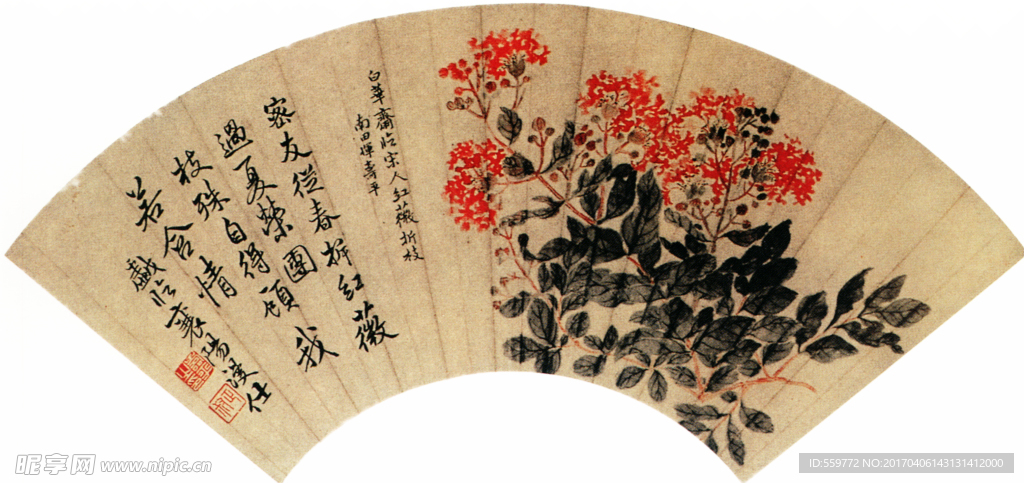 白華齋臨宋人紅薇折枝
南田惲壽平
密友從春拆紅薇
過夏榮團
枝殊自得
若含情
戲臨襄陽
昵享网 www.nipic.cn
ID:559772 NO:20170406143131412000